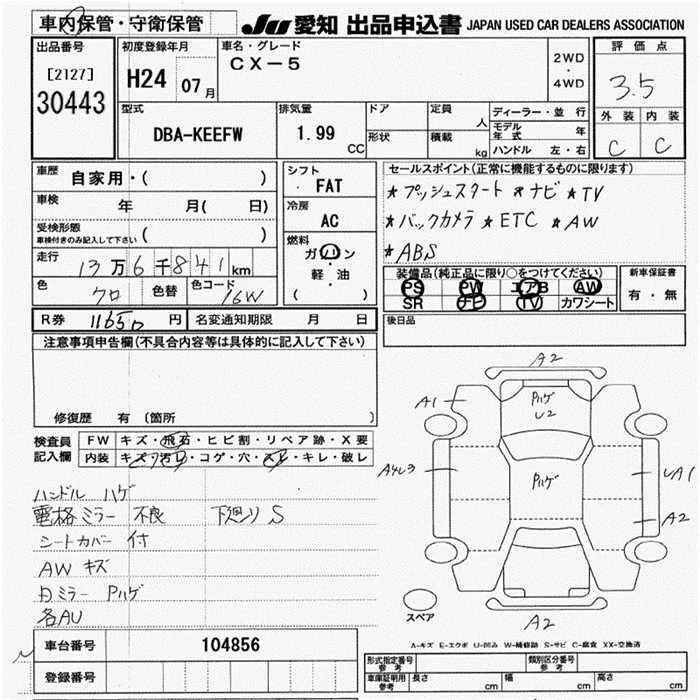 車内保管・守衛保管 JU 愛知 出品申込書 JAPAN USED CAR DEALERS ASSOCIATION
出品番号 初度登録年月 車名・グレード 評価点
[2127] H24 07月 CX-5 2WD・4WD 3.5
30443
型式 排気量 ドア 定員 人 ディーラー・並行 外装 内装
DBA-KEEFW 1.99 CC 形状 積載 kg モデル年式 年 C C
ハンドル 左・右
車歴 自家用・( ) シフト FAT セールスポイント(正常に機能するものに限ります)
車検 年 月( 日) 冷房 AC ★プッシュスタート ★ナビ ★TV
受検形態 ( ) ★バックカメラ ★ETC ★AW
車検付きのみ記入して下さい 燃料 ガソリン ★ABS
走行 13万6千841km 軽・油 装備品(純正品に限り○をつけてください) 新車保証書
色 クロ 色替 色コード 16W ( ) PS PW エアB AW 有・無
SR ナビ TV カワシート
R券 11650 円 名変通知期限 月 日 後日品
注意事項申告欄(不具合内容等は具体的に記入して下さい)
修復歴 有 (箇所 )
検査員 FW キズ・飛石・ヒビ割・リペア跡・X要
記入欄 内装 キズ・汚レ・コゲ・穴・スレ・キレ・破レ
A2
A1 Pハゲ
U2
Pハゲ
A1
A2
A2
スペア
ハンドル ハゲ
電格ミラー 不良 下廻り S
シートカバー 付
AW キズ
ミラー Pハゲ
各AU
A-キズ E-エクボ U-凹み W-補修跡 S-サビ C-腐食 XX-交換済
車台番号 104856
登録番号
形式指定番号 参考 類別区分番号 参考
車庫証明用 参考 長さ cm 幅 cm 高さ cm